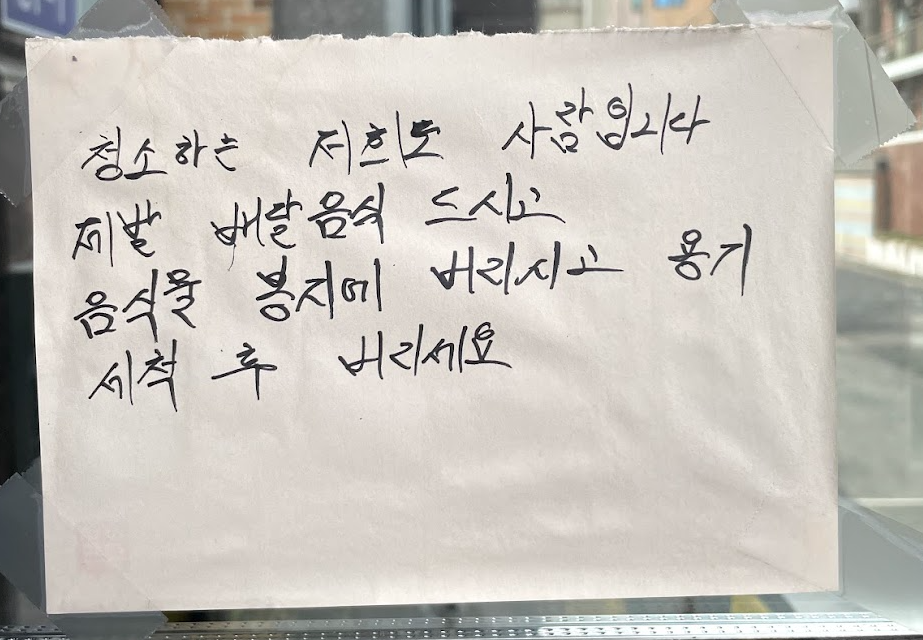 청소하는 저희도 사람입니다
제발 배달음식 드시고
음식물 봉지에 버리시고 용기
세척 후 버리세요